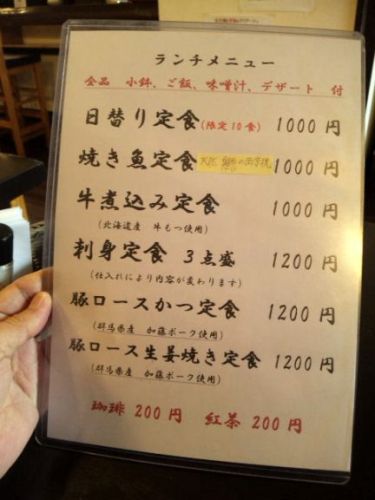 ランチメニュー
全品 小鉢、ご飯、味噌汁、デザート 付
日替り定食(限定10食) 1000円
焼き魚定食 1000円
牛煮込み定食 1000円
(北海道産 牛もつ使用)
刺身定食 3点盛 1200円
(仕入れにより内容が変わります)
豚ロースかつ定食 1200円
(群馬県産 加藤ポーク使用)
豚ロース生姜焼き定食 1200円
(群馬県産 加藤ポーク使用)
珈琲 200円 紅茶 200円